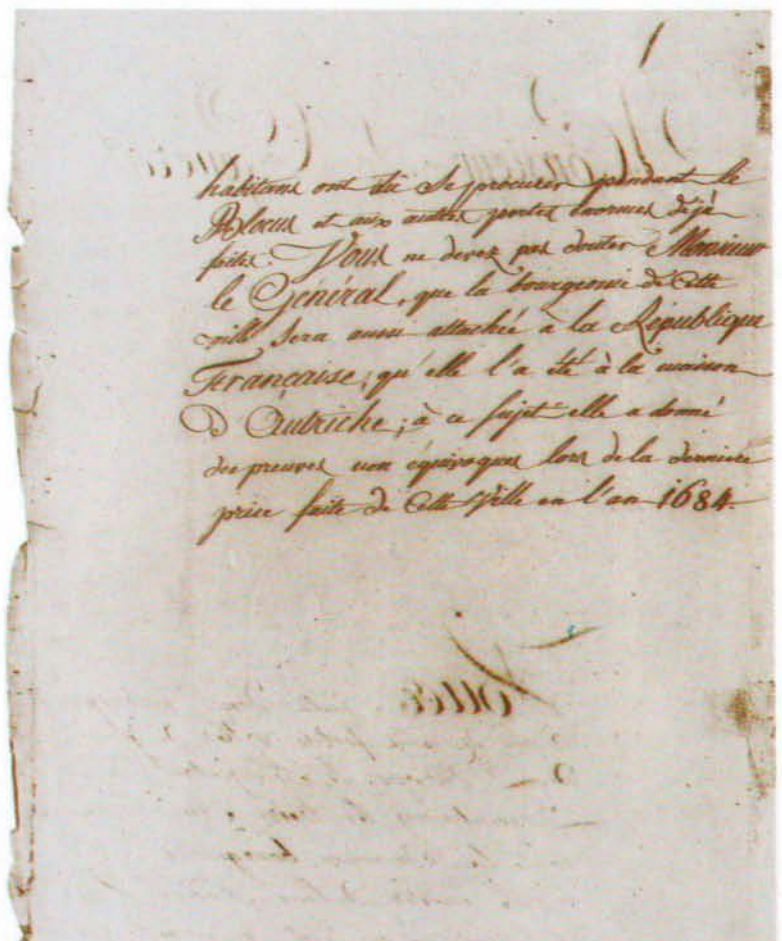 habitans ont dû se procurer pendant le
Blocus et aux autres pertes énormes déjà
faites. Vous ne devez pas douter Monsieur
le Général, que la bourgeoisie de Cette
ville sera aussi attachée à la République
Française, qu'elle l'a été à la maison
D'Autriche; à ce sujet elle a donné
des preuves non équivoques lors de la derniere
prise faite de Cette Ville en l'an 1684.